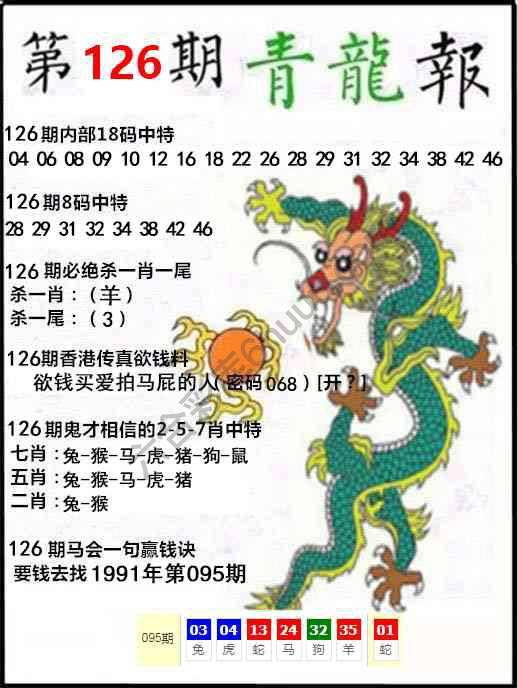 第126期青龍報
126期内部18码中特
04 06 08 09 10 12 16 18 22 26 28 29 31 32 34 38 42 46
126期8码中特
28 29 31 32 34 38 42 46
126 期必绝杀一肖一尾
杀一肖：（羊）
杀一尾：（3）
126期香港传真欲钱料
欲钱买爱拍马屁的人(密码068）[开？]
126期鬼才相信的2-5-7肖中特
七肖：兔-猴-马-虎-猪-狗-鼠
五肖：兔-猴-马-虎-猪
二肖：兔-猴
126 期马会一句赢钱诀
要钱去找1991年第095期
095期 03 04 13 24 32 35 01
兔 虎 蛇 马 狗 羊 蛇